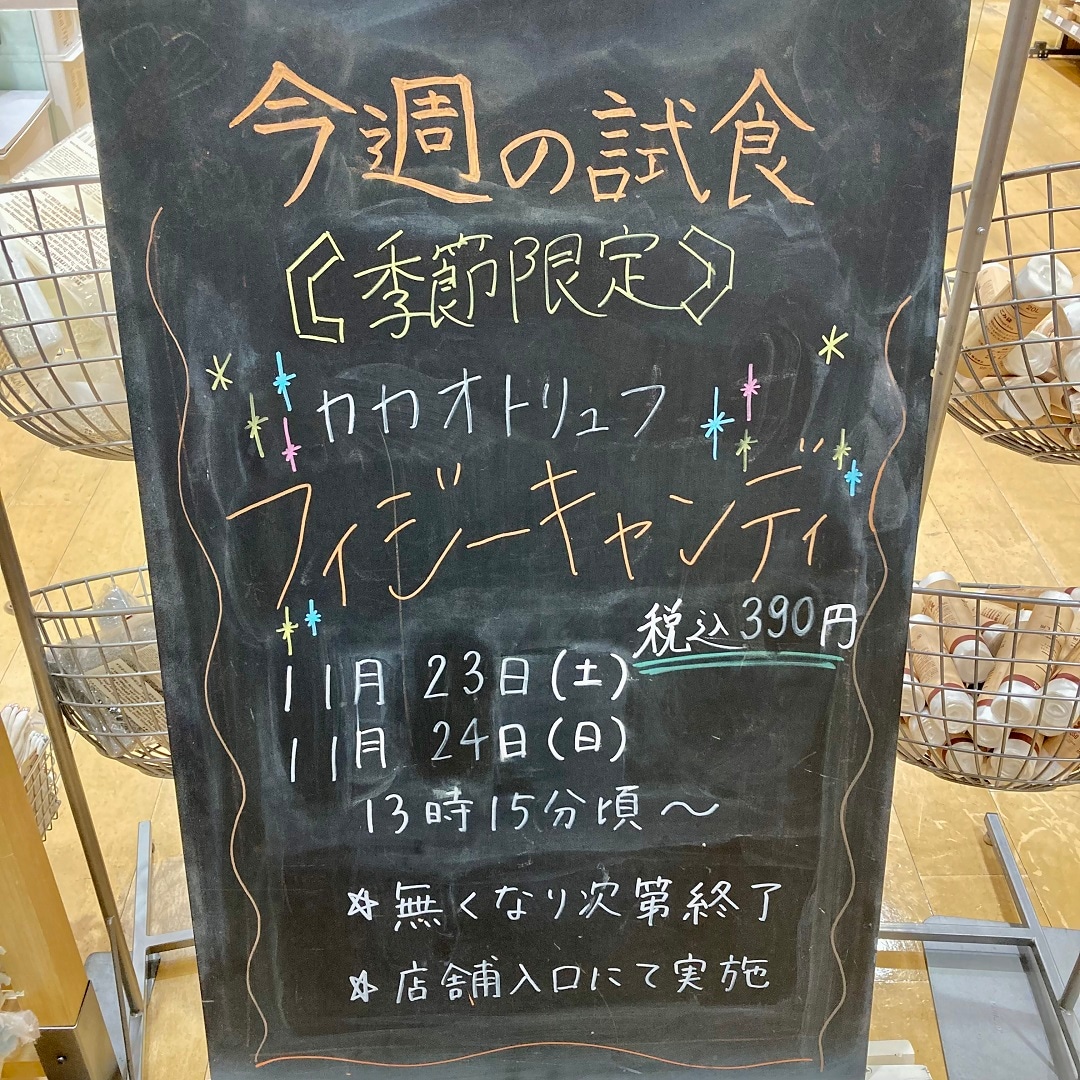 今週の試食
《季節限定》
カカオトリュフ
フィジーキャンディ
税込390円
11月 23日(土)
11月 24日(日)
13時15分頃～
☆無くなり次第終了
☆店舗入口にて実施